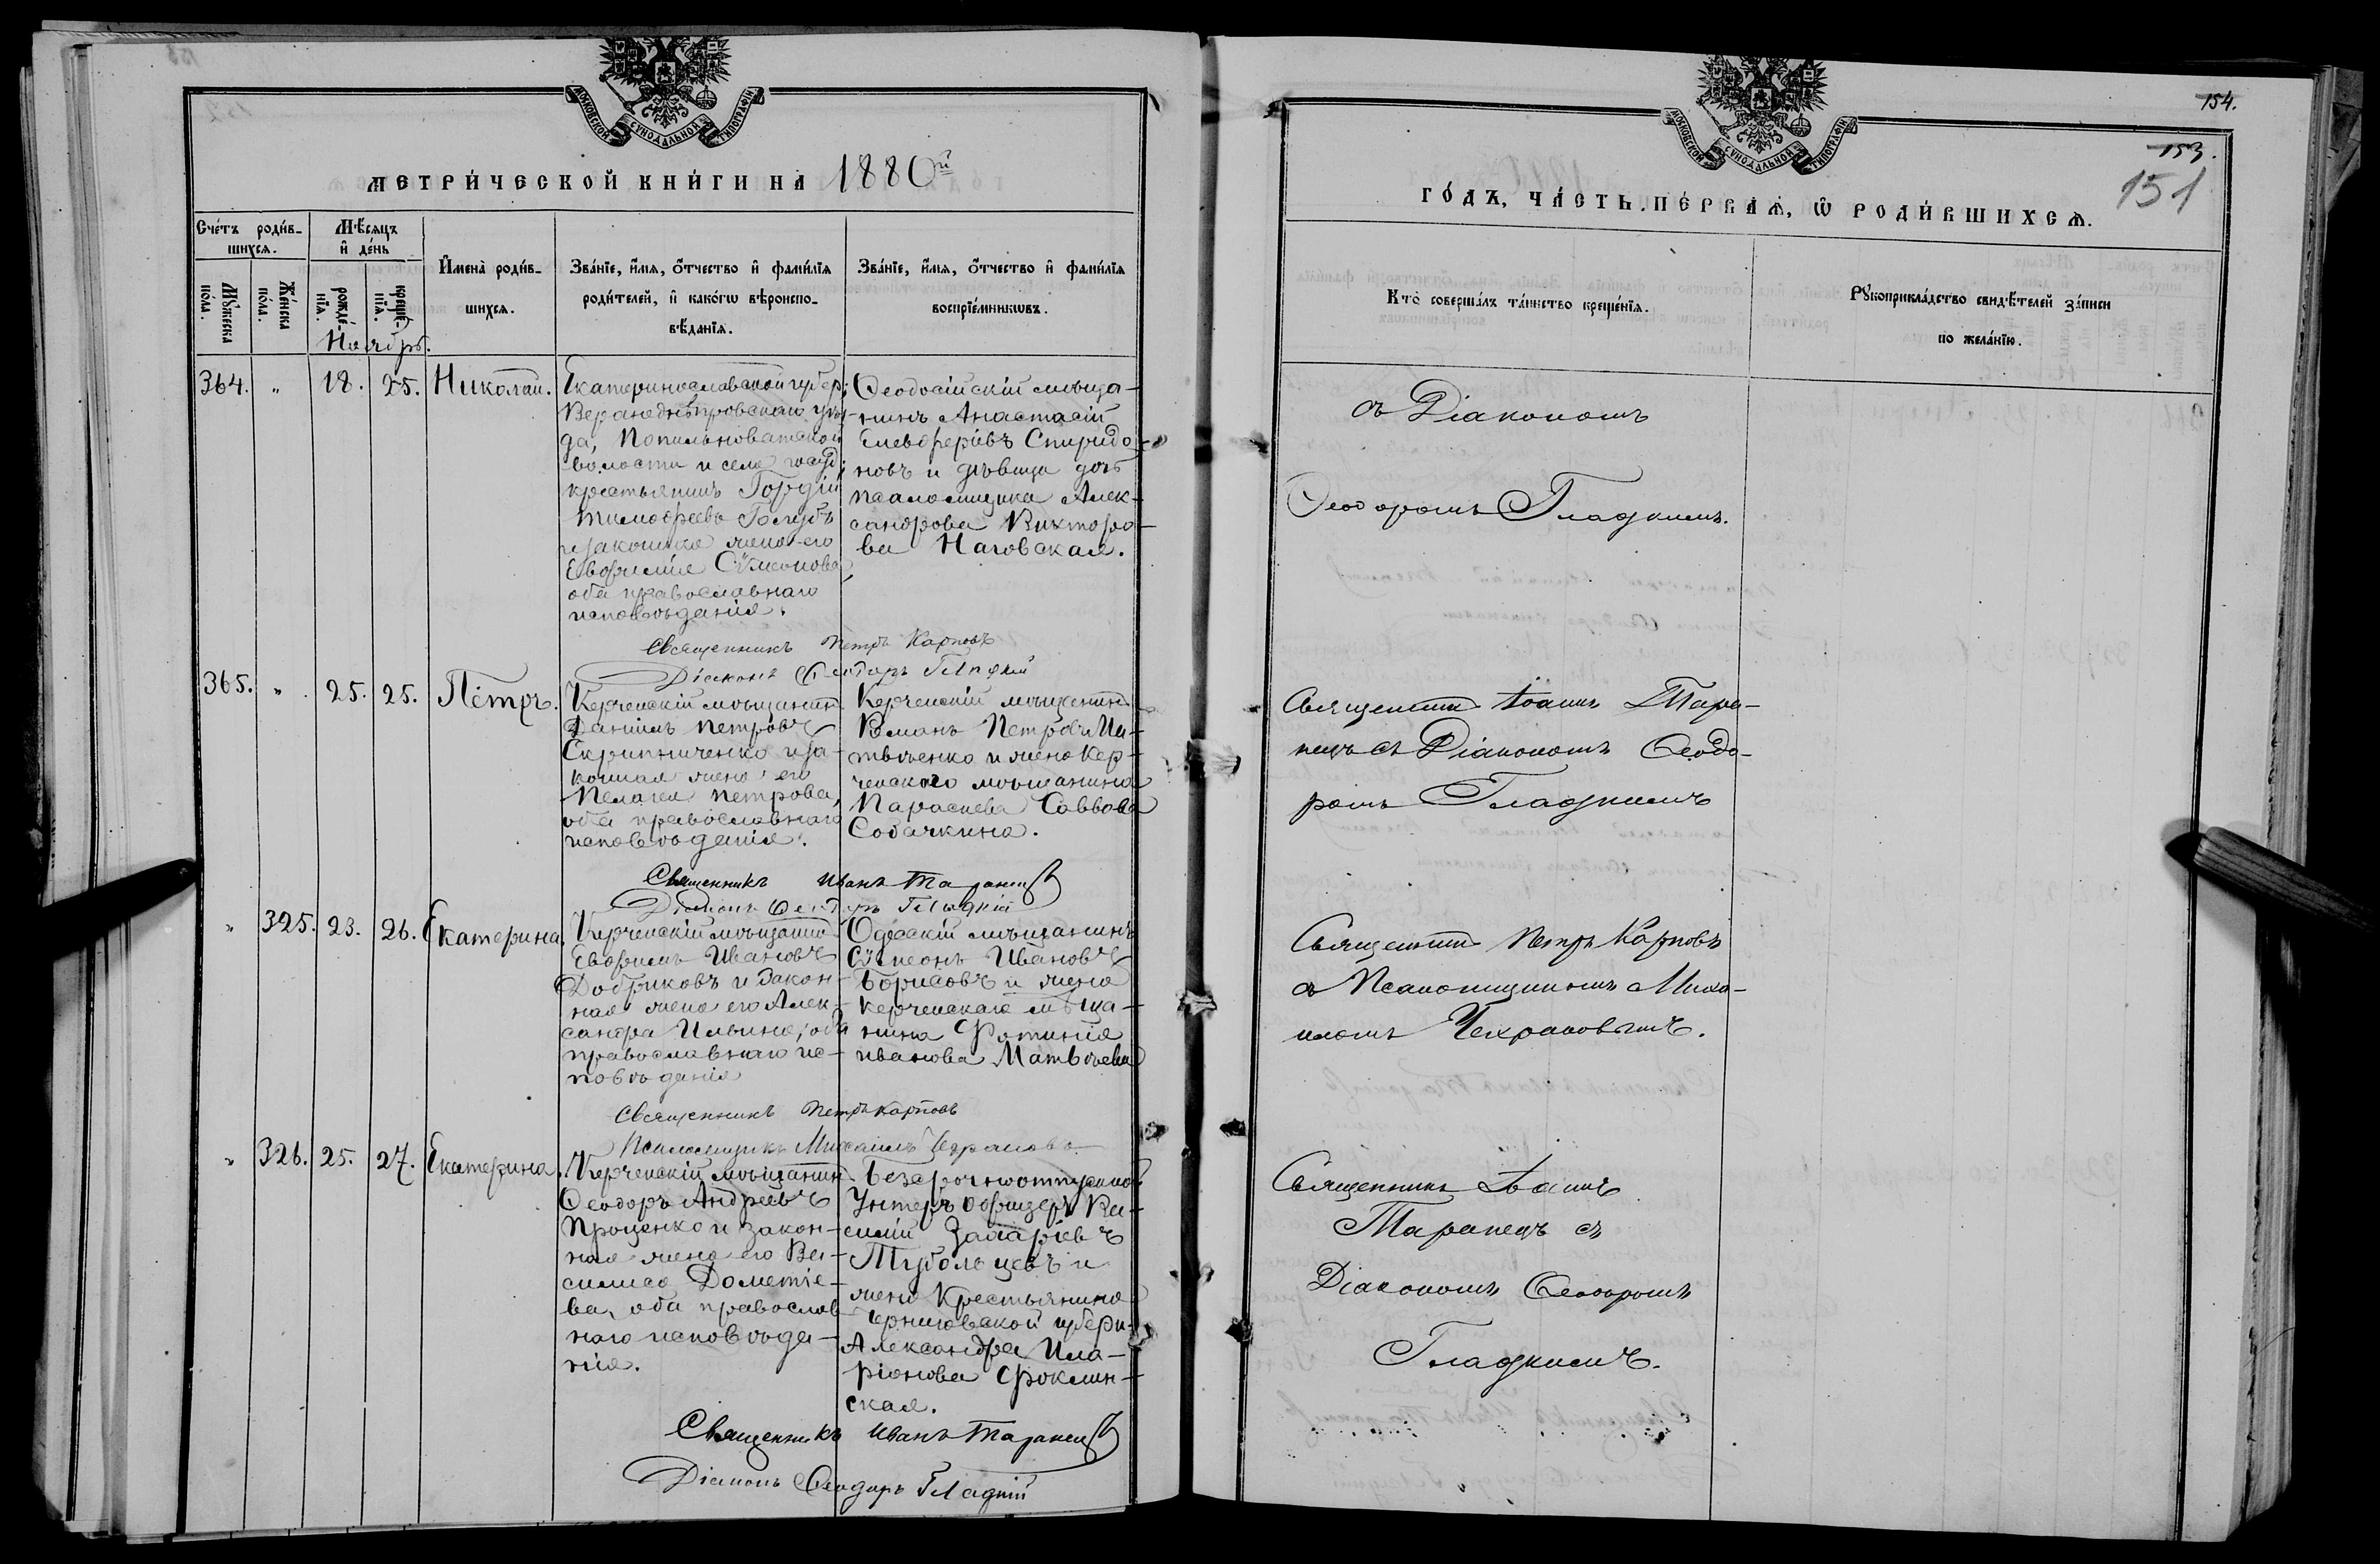 МОСКОВСКОЙ СУНОДАЛЬНОЙ ТИПОГРАФІИ
МЕТРИ́ЧЕСКОЙ КНИ́ГИ НА 1880й
Сче́тъ роди́в-
шихсѧ.
Мѣ́сѧцъ
и҆ де́нь
Мꙋ́жеска
по́ла.
Же́нска
по́ла.
рожде́-
нїѧ.
креще́-
нїѧ.
И҆мена̀ роди́в-
шихсѧ.
Зва́нїе, и҆́мѧ, о҆́тчество и҆ фами́лїѧ
роди́телей, и҆ како́гѡ вѣроиспо-
вѣ́данїѧ.
Зва́нїе, и҆́мѧ, о҆́тчество и҆ фами́лїѧ
воспрїе́мникѡвъ.
Ноябрь.
364. „ 18. 25. Николай.
Екатеринославской губер;
Верхнеднѣпровскаго уѣз-
да, Попильноватской
волости и села госуд;
крестьянинъ Гордій
Тимоѳеевъ Голубъ
и законная жена его
Евфимія Сѵмеонова,
оба православнаго
исповѣданія.
Ѳеодосійскій мѣща-
нинъ Анастасій
Елевферіевъ Спиридо-
новъ и дѣвица дочь
псаломщика Алек-
сандрова Викторо-
ва Наговская.
Священникъ Петръ Карповъ
Діаконъ Ѳеодоръ Гладкій
365. „ 25. 25. Петръ.
Керченскій мѣщанинъ
Даніилъ Петровъ
Скрипниченко и за-
конная жена его
Пелагея Петрова,
оба православнаго
исповѣданія.
Керченскій мѣщанинъ
Романъ Петровъ Ма-
твѣенко и жена Кер-
ченскаго мѣщанина
Параскева Саввова
Собачкина.
Священникъ Иванъ Таранецъ
Діаконъ Ѳеодоръ Гладкій
„ 325. 23. 26. Екатерина.
Керченскій мѣщанинъ
Евфимъ Ивановъ
Добриковъ и закон-
ная жена его Алек-
сандра Ильина, оба
православнаго ис-
повѣданія
Одесскій мѣщанинъ
Сѵмеонъ Ивановъ
Борисовъ и жена
Керченскаго мѣща-
нина Фотинія
Иванова Матвѣева
Священникъ Петръ Карповъ
Псаломщикъ Михаилъ Чехрановъ
„ 326. 25. 27. Екатерина.
Керченскій мѣщанинъ
Ѳеодоръ Андреевъ
Проценко и закон-
ная жена его Ва-
силиса Дометіе-
ва, оба православ-
наго исповѣда-
нія.
Безсрочноотпускной
Унтеръ Офицеръ Ва-
силій Захаріевъ
Тубольцевъ и
жена Крестьянина
Черниговской губерн.
Александра Ила-
ріонова Фоклин-
ская.
Священникъ Иванъ Таранецъ
Діаконъ Ѳеодоръ Гладкій
154.
МОСКОВСКОЙ СУНОДАЛЬНОЙ ТИПОГРАФІИ
153.
151
ГО́ДЪ, ЧА́СТЬ ПЕ́РВАѦ, Ѡ҆ РОДИ́ВШИХСѦ.
Кто̀ соверша́лъ та́инство креще́нїѧ.
Рꙋкоприкла́дство свидѣ́телей за́писи
по жела́нїю.
съ Діакономъ
Ѳеодоромъ Гладкимъ.
Священникъ Іоаннъ Тара-
нецъ съ Діакономъ Ѳеодо-
ромъ Гладкимъ
Священникъ Петръ Карповъ
съ Псаломщикомъ Миха-
иломъ Чехрановымъ.
Священникъ Іоаннъ
Таранецъ съ
Діакономъ Ѳеодоромъ
Гладкимъ.